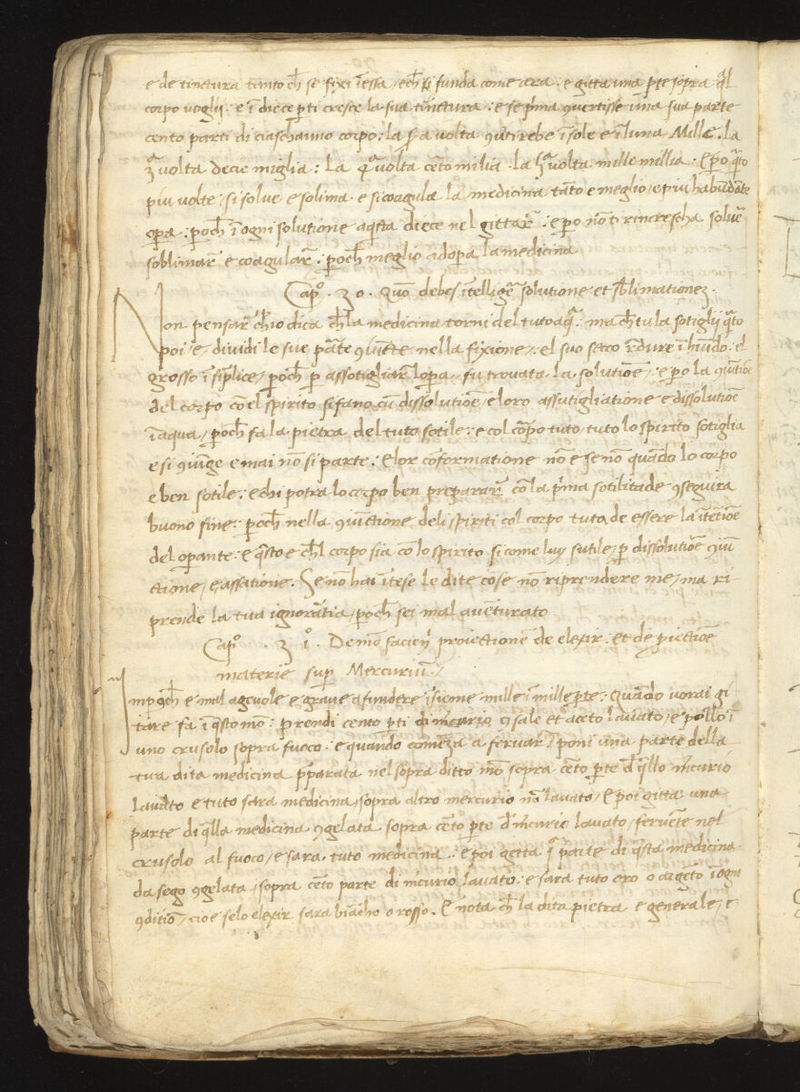 e de tinctura tanto ch̄ se fixi īessa / ech̄ si funda come cera : e gitta una pte sopra q̄l
corpo voglij : e ī diece pti cresce la sua tinctura : e se pīma 9vertisse una sua parte
cento parti di ciaschauno corpo : la 2a volta 9vtirebe ī sole e ī luna Mille . la
3a volta dece miglia : La 4a volta cēto milia . la 5a volta mille millia . E po q̄to
piu volte / si solve e solima . e si coagula la medicina tāto e meglio / e piu habūdāte
opa : poch̄ ī ogni solutione aq̄sta diece nel gittar̄ : e po nō ti rincrescha solue
soblimar̄ e coagular̄ . poch̄ meglio adopa la medicina
Capo . 30 . Quō debes ītelligē solutione et sblimationez .
Non pensar̄ ch̄ io dica ch̄ la medicina torni del tuto aq̄ : ma ch̄ tu la sotiglij q̄to
poi / e dividi le sue pate 9iūcte nella fixione / el suo secco īdure ī hūido : el
grosso ī sīplice / poch̄ p assotigliar̄ lopa / fu trovata la solutiōe / e po la 9iūtiōe
del corpo cō el spirito si fano cū dissolutiōe / e loro assutigliatione e dissolutiōe
ī aqua / poch̄ fa la pietra del tuto sotile : e col corpo tuto / tuto lo spirito sotiglia
e si 9iūge e mai nō si parte : E lor cōformatione nō e se nō quādo lo corpo
e ben sotile : e chi potra lo corpo ben preparar̄ cō la pīma sotilitade 9seguira
buono fine : poch̄ nella 9iūctione deli spiriti col corpo tuta de essere la ītētiōe
del opante : e q̄sto e ch̄ l corpo sia cō lo spirito si come luy sutile / p dissolutiōe 9iū
ctione / e assatione . Se nō hai ītese le dite cose nō riprendere me / ma ri-
prende la tua ignorātia / poch̄ sei mal avēturato
Capo . 31o . De mō faciēn proiectione de elexir . et de piectiōe
materie sup Mercuriū /
Impoch̄ e mal agevole e grave a fundere īsieme mille ī mille pte : Quādo vorai gi
tare fa ī q̄sto mō : prendi cento pti di mcurio cō sale et aceto lavato / e pollo ī
uno crusolo sopra fuoco : e quando comēza a fervar̄ / poni una parte della
tua dita medicina pparata nel sopra ditto mō sopra cēto pte d̄ q̄llo mcurio
lavato e tuto sara medicina / sopra altro mercurio nō lavato / E poi gitta una
parte di q̄lla medicina 9gelata sopra cēto pte d̄ mcurio lavato / fervēte nel
crusolo al fuoco / e sara tuto medicina : e poi getta 1a parte di q̄sta medicina
da sego 9gelata / sopra cēto parte di mcurio lavato : e sara tuto oro o argēto ī ogni
9ditiō / cio e se lo elexir sara biācho o rosso . E nota ch̄ la dita pietra e generale / e